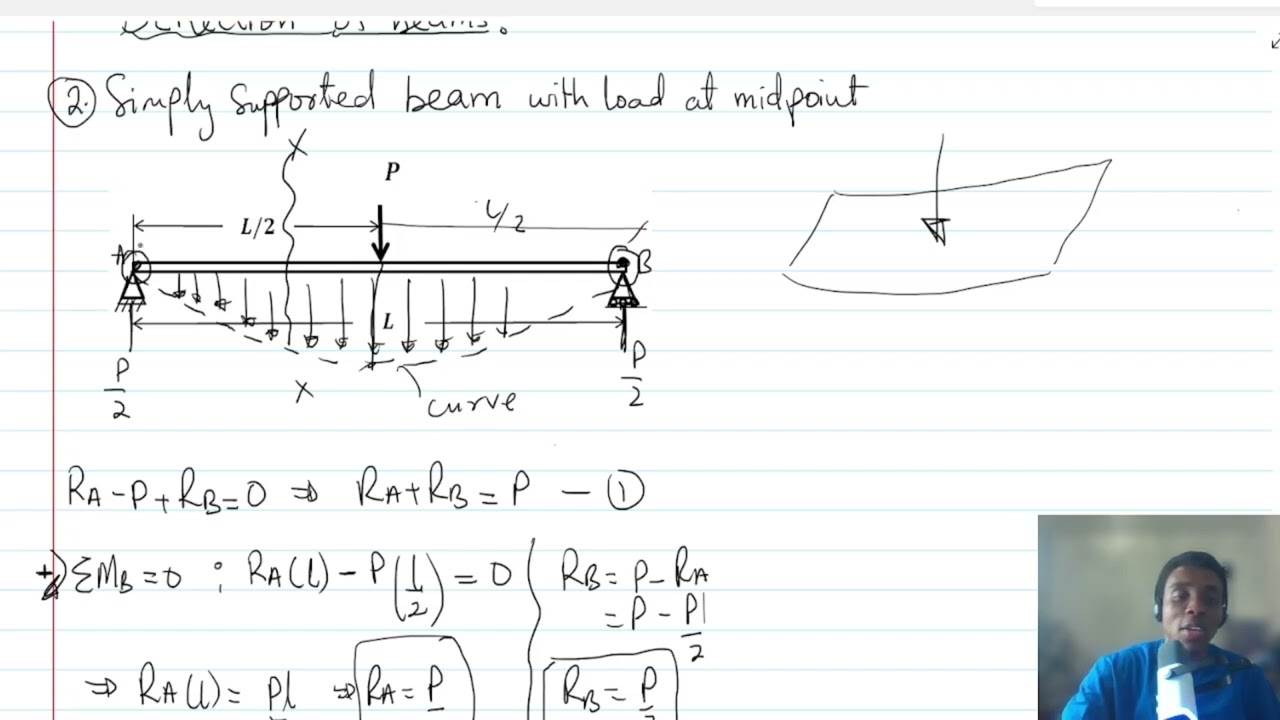 Deflection of Beams.
② Simply Supported beam with load at midpoint
X
P
L/2
L/2
A
B
L
P/2
P/2
X
curve
RA - P + RB = 0 ⇒ RA + RB = P — ①
+ ΣMB = 0 ; RA(l) - P(l/2) = 0
RB = P - RA
= P - P/2
⇒ RA(l) = Pl ⇒ RA = P
RB = P/2